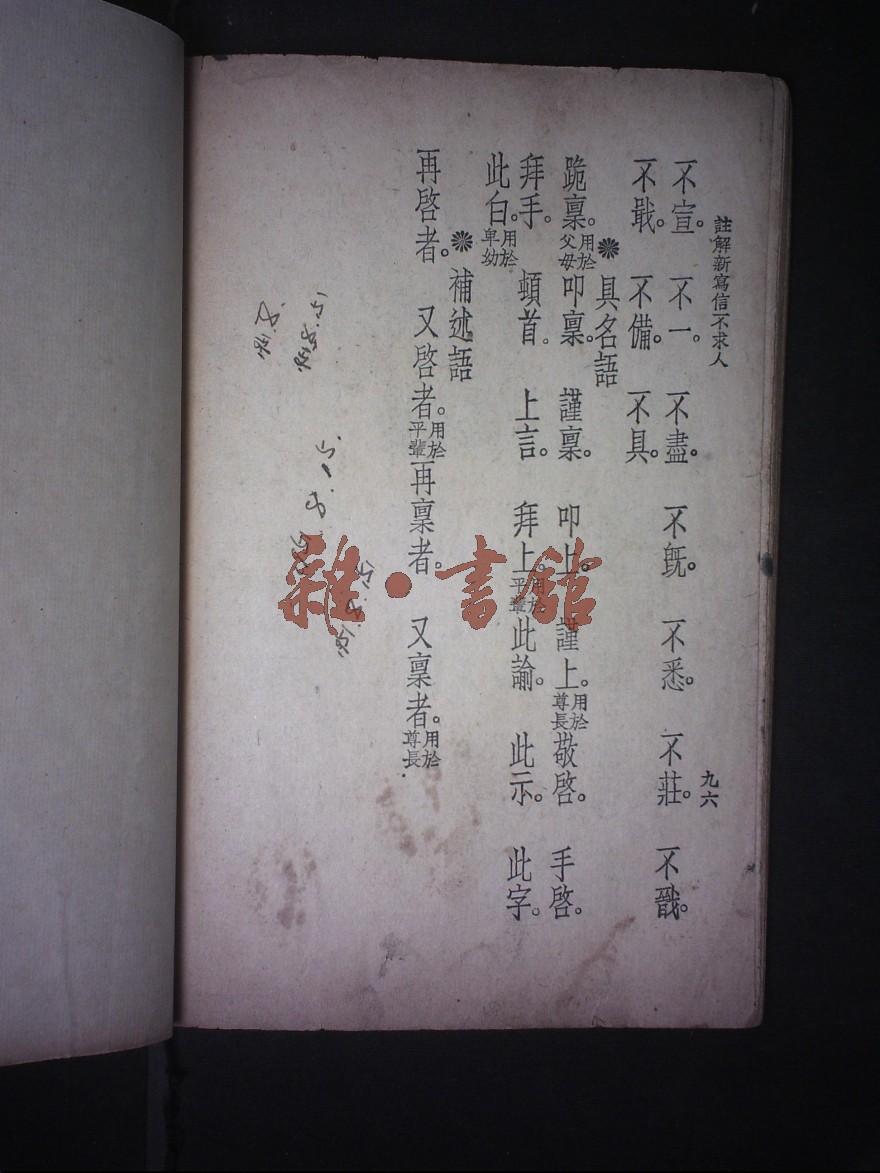 註解新寫信不求人
九六
不宣。 不一。 不盡。 不旣。 不悉。 不莊。 不戩。
不戢。 不備。 不具。
具名語
跪稟。用於父母 叩稟。 謹稟。 叩上。 謹上。用於尊長 敬啓。 手啓。
拜手。 頓首。 上言。 拜上。用於平輩 此諭。 此示。 此字。
此白。用於卑幼
補述語
再啓者。 又啓者。用於平輩 再稟者。 又稟者。用於尊長
雜·書館